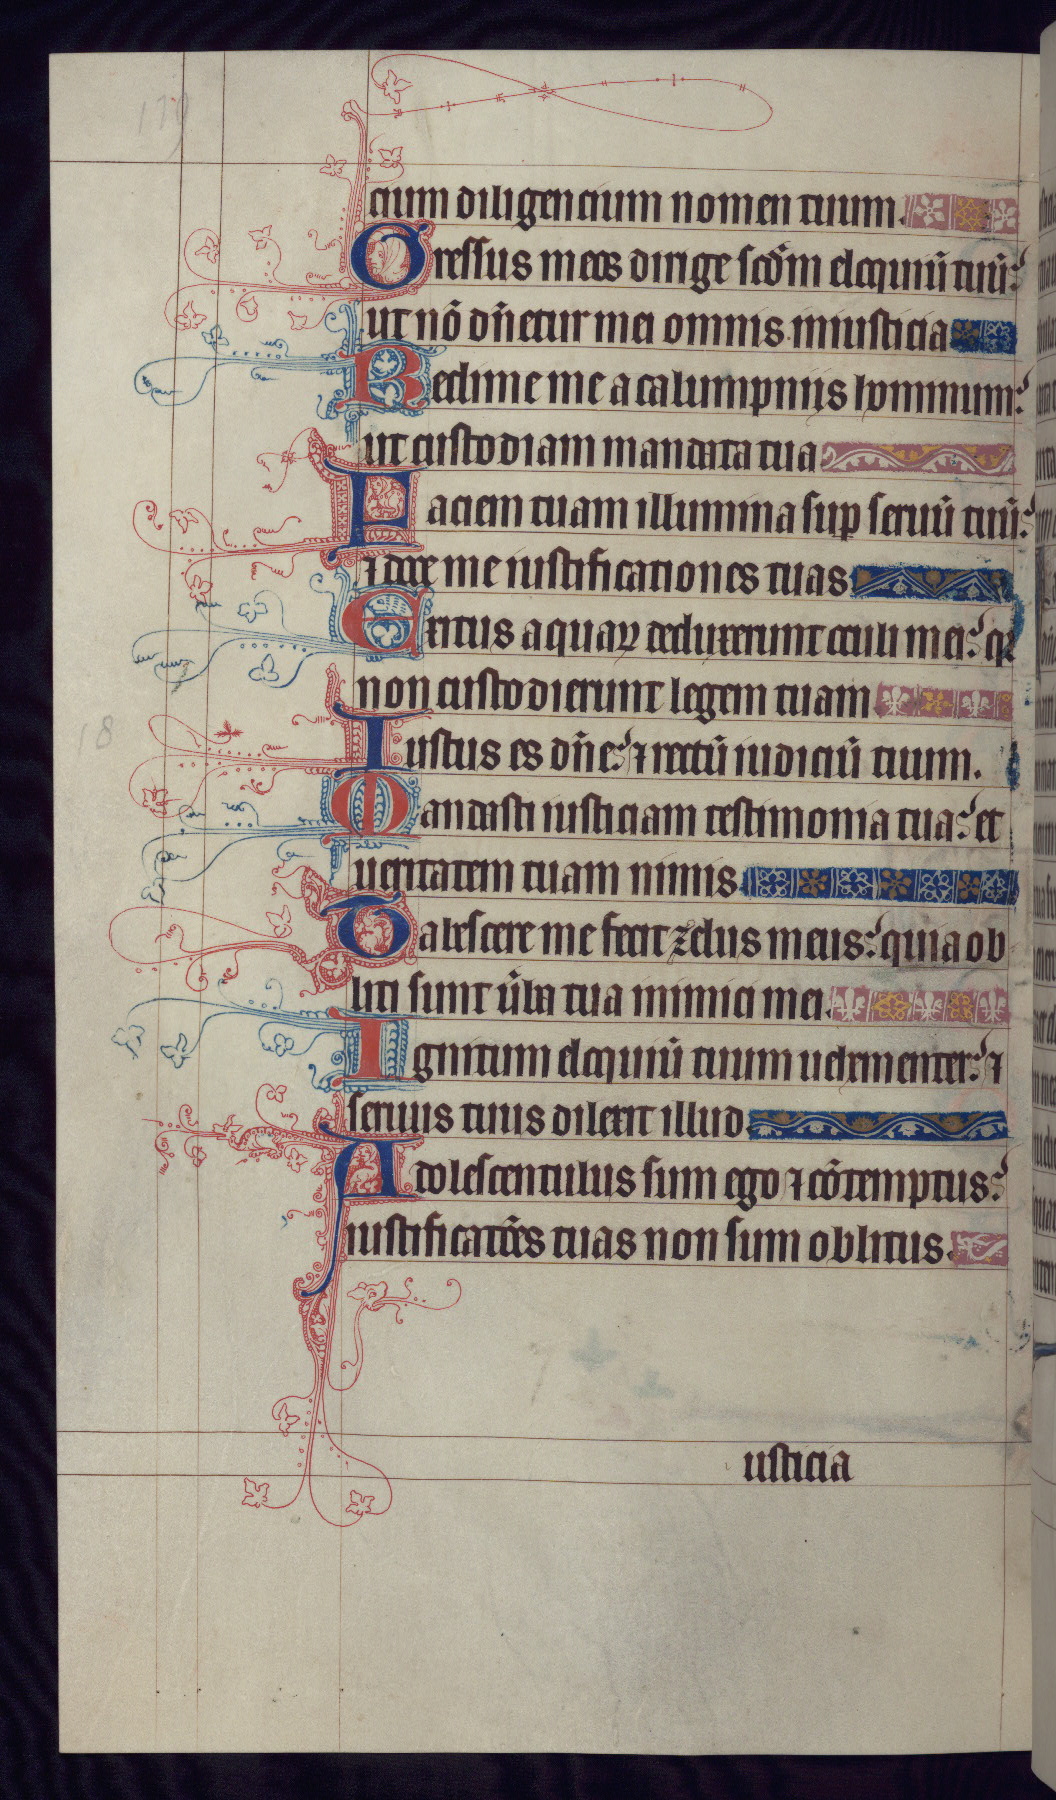 cium diligencium nomen tuum.
Gressus meos dirige scd̄m eloquiū tuū:
ut nō dn̄etur mei omnis iniusticia
Redime me a calumpniis hominum:
ut custodiam mandata tua
Faciem tuam illumina sup seruū tuū:
⁊ doce me iustificationes tuas
Exitus aquaꝝ deduxerunt oculi mei: qꝛ
non custodierunt legem tuam
Iustus es dn̄e: ⁊ rectū iudiciū tuum.
Mandasti iusticiam testimonia tua: et
ueritatem tuam nimis.
Tabescere me fecit zelus meus: quia ob
liti sunt ūba tua inimici mei.
Ignitum eloquiū tuum uehementer: ⁊
seruus tuus dilexit illud.
Adolescentulus sum ego ⁊ cōtemptus:
iustificatōes tuas non sum oblitus.
iusticia